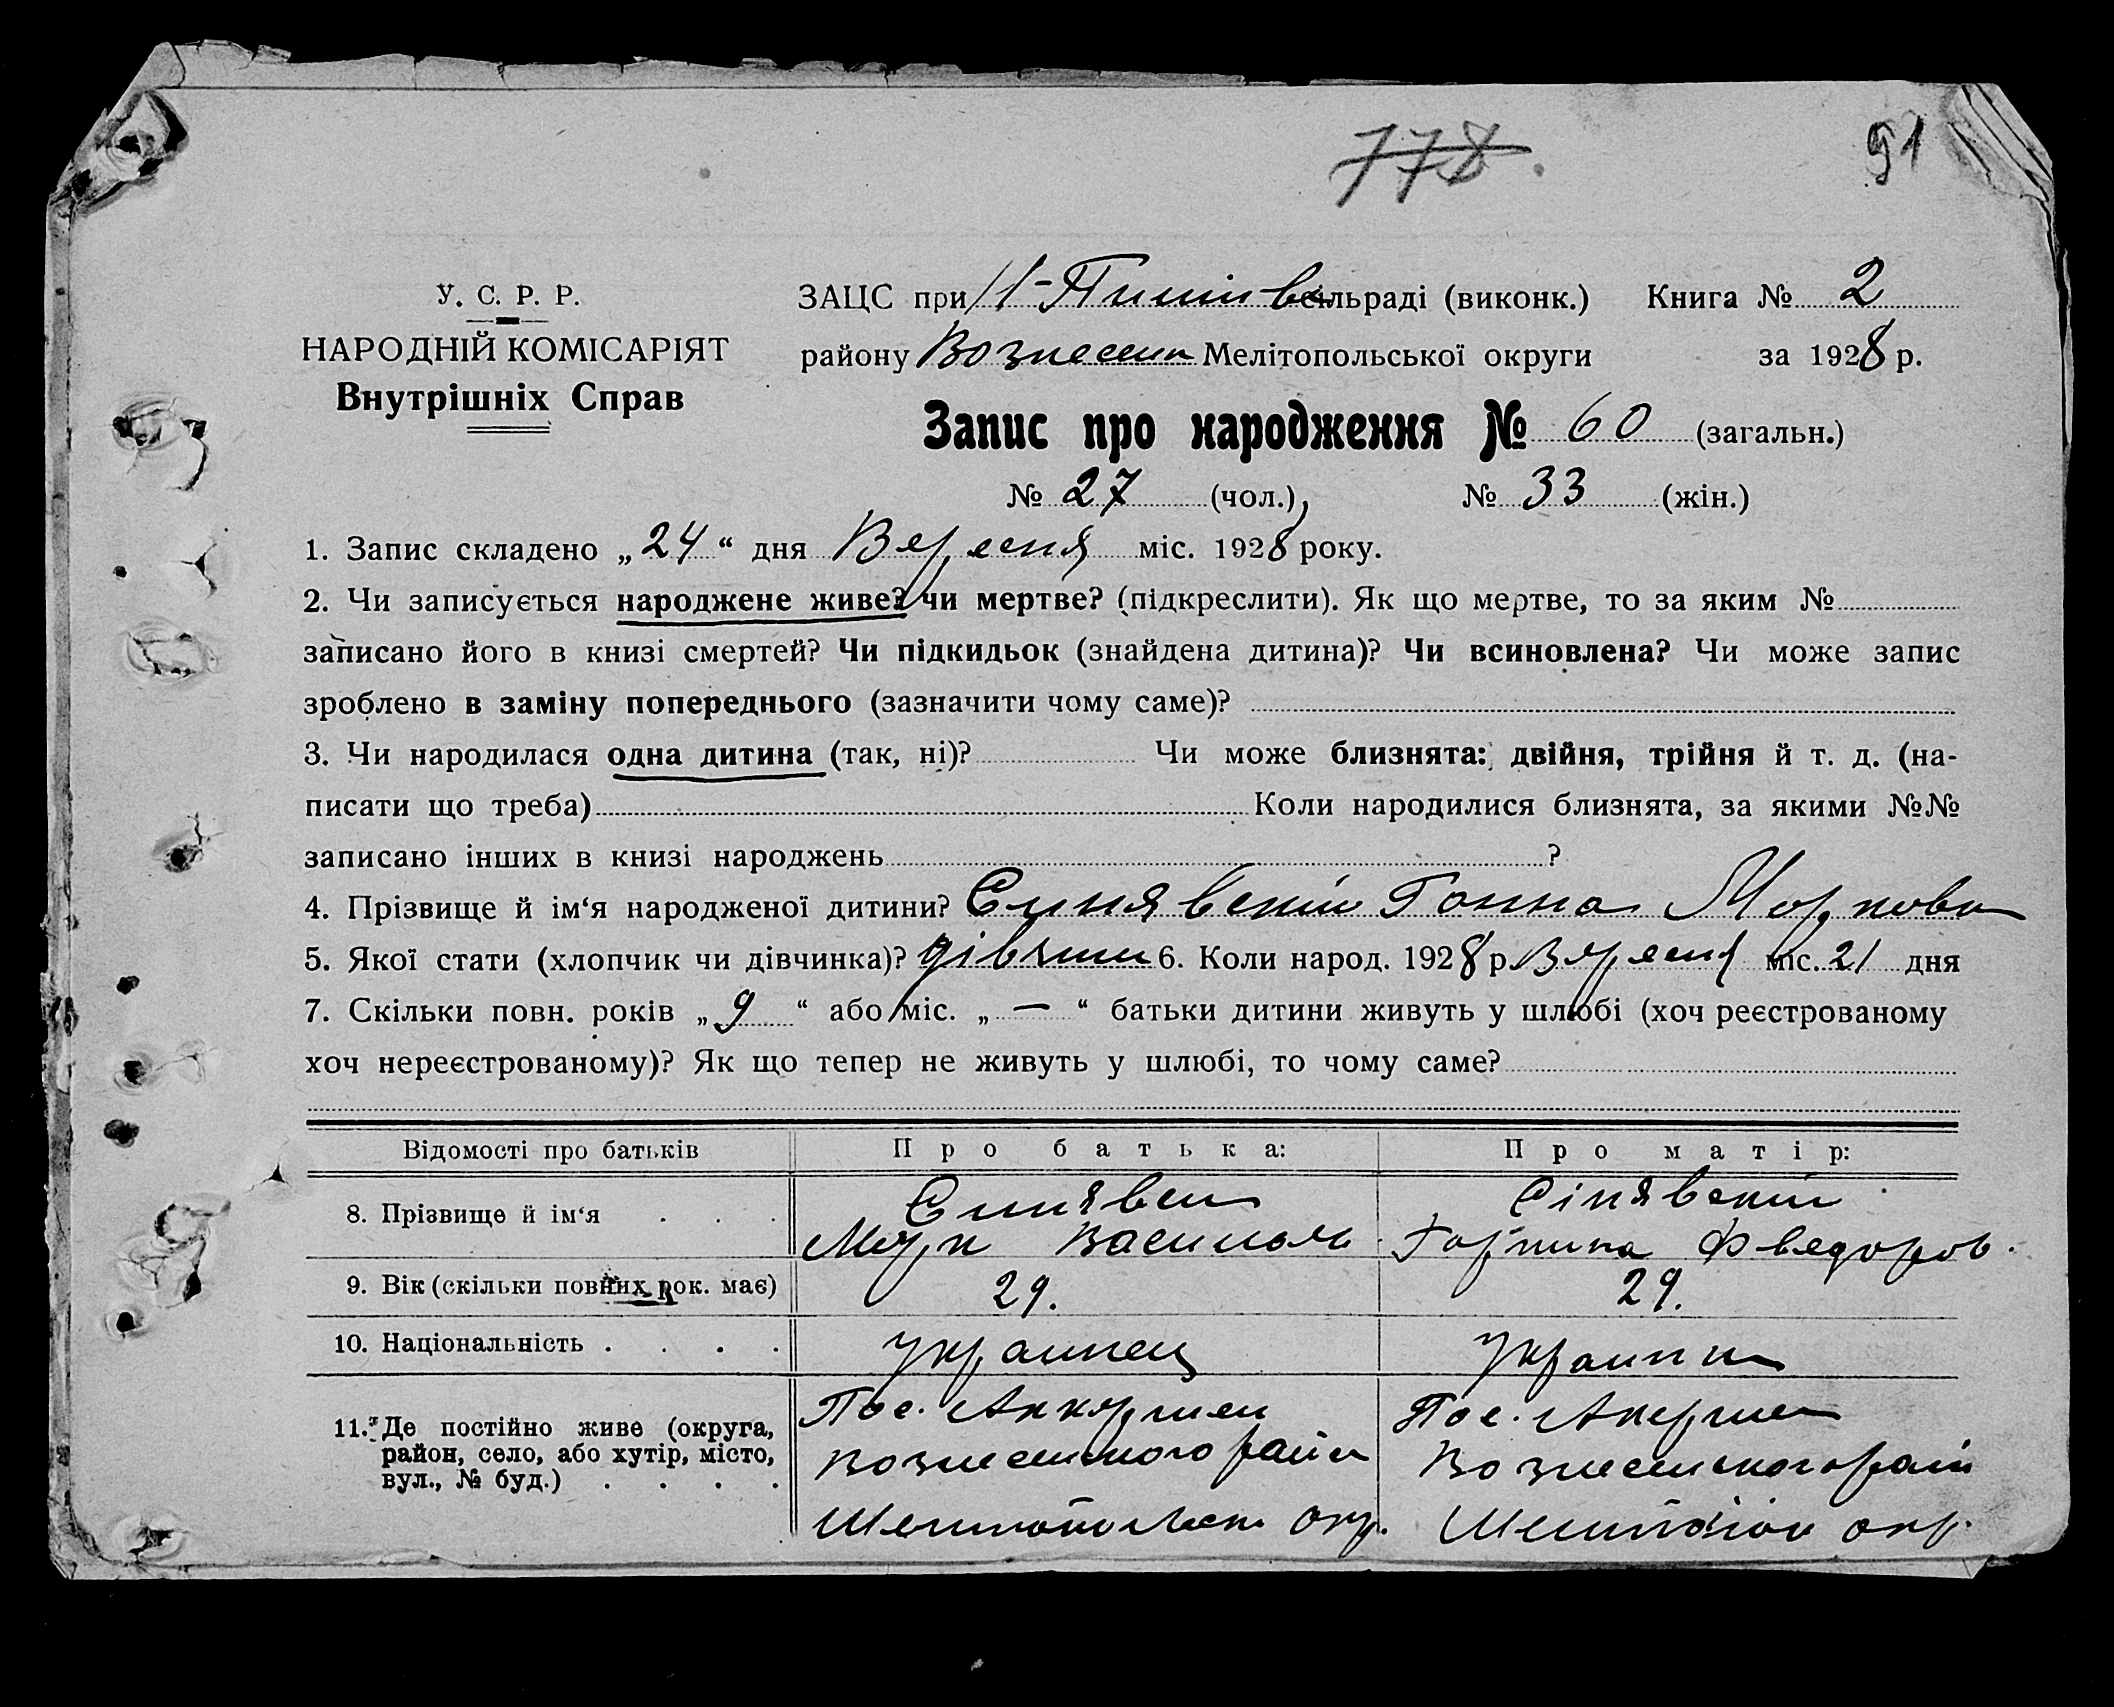 778.
91
У. С. Р. Р.
НАРОДНІЙ КОМІСАРІЯТ
Внутрішніх Справ
ЗАЦС при сільраді (виконк.) Книга № 2
району Вознесен Мелітопольської округи за 1928 р.
Запис про народження № 60 (загальн.)
№ 27 (чол.), № 33 (жін.)
1. Запис складено „24“ дня Вересня міс. 1928 року.
2. Чи записується народжене живе? чи мертве? (підкреслити). Як що мертве, то за яким №
записано його в книзі смертей? Чи підкидьок (знайдена дитина)? Чи всиновлена? Чи може запис
зроблено в заміну попереднього (зазначити чому саме)?
3. Чи народилася одна дитина (так, ні)? Чи може близнята: двійня, трійня й т. д. (на-
писати що треба) Коли народилися близнята, за якими №№
записано інших в книзі народжень ?
4. Прізвище й ім‘я народженої дитини? Синявській Ганна Маркова
5. Якої стати (хлопчик чи дівчинка)? дівчин 6. Коли народ. 1928 р. Вересня міс. 21 дня
7. Скільки повн. років „9“ або міс. „—“ батьки дитини живуть у шлюбі (хоч реєстрованому
хоч нереєстрованому)? Як що тепер не живуть у шлюбі, то чому саме?
Відомості про батьків Про батька: Про матір:
8. Прізвище й ім‘я . . . Синявск Сінявській
Марк Василь Горпина Фведоров.
9. Вік (скільки повних рок. має) 29. 29.
10. Національність . . . . Украинец Украинк
11. Де постійно живе (округа, Пос. Пос.
район, село, або хутір, місто, Вознесенского район Вознесенского рай
вул., № буд.) . . . . Мелитопольск. окр. окр.